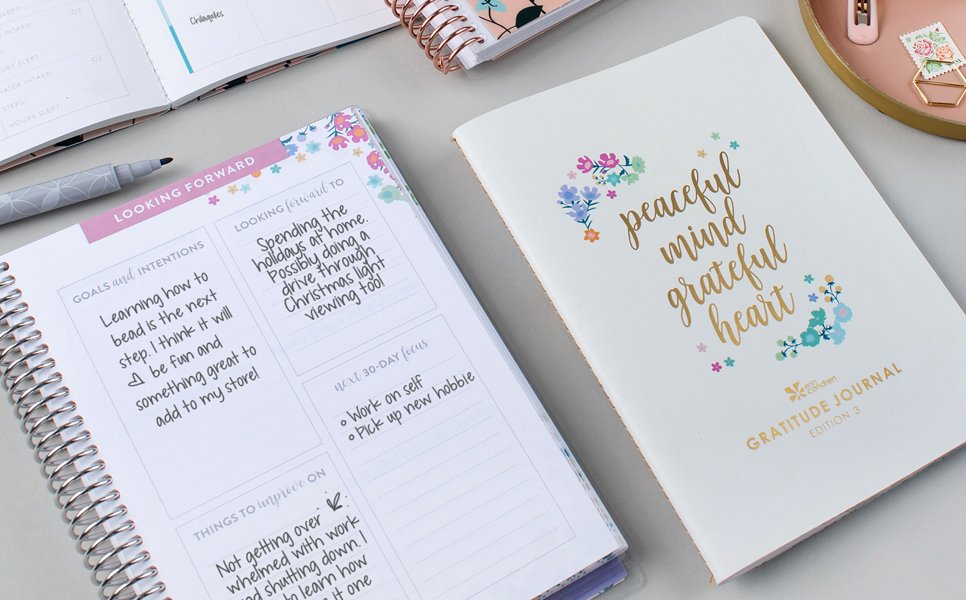 Chilaquiles
HOURS SLEPT:
OZ
WATER INTAKE:
OZ
STEPS:
HOURS SLEPT:
LOOKING FORWARD
GOALS and INTENTIONS
Learning how to
bead is the next
step. I think it will
be fun and
something great to
add to my store!
LOOKING forward TO
Spending the
holidays at home.
Possibly doing a
drive through
Christmas light
viewing too!
next 30-DAY focus
Work on self
Pick up new hobbie
THINGS TO improve ON
Not getting over
whelmed with work
and shutting down. I
to learn how
it one
peaceful
mind
grateful
heart
erin
condren
GRATITUDE JOURNAL
EDITION 3